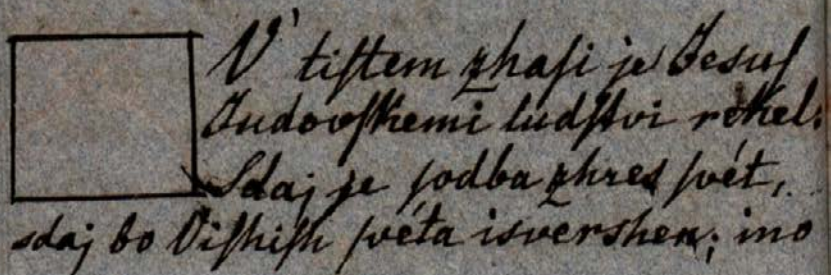 V' tiſtem zhaſi je Jesuſ
Judovſkemi ludſtvi rekel:
Sdaj je ſodba zhres ſvét,
sdaj bo Viſhiſh ſvéta isvershen; ino